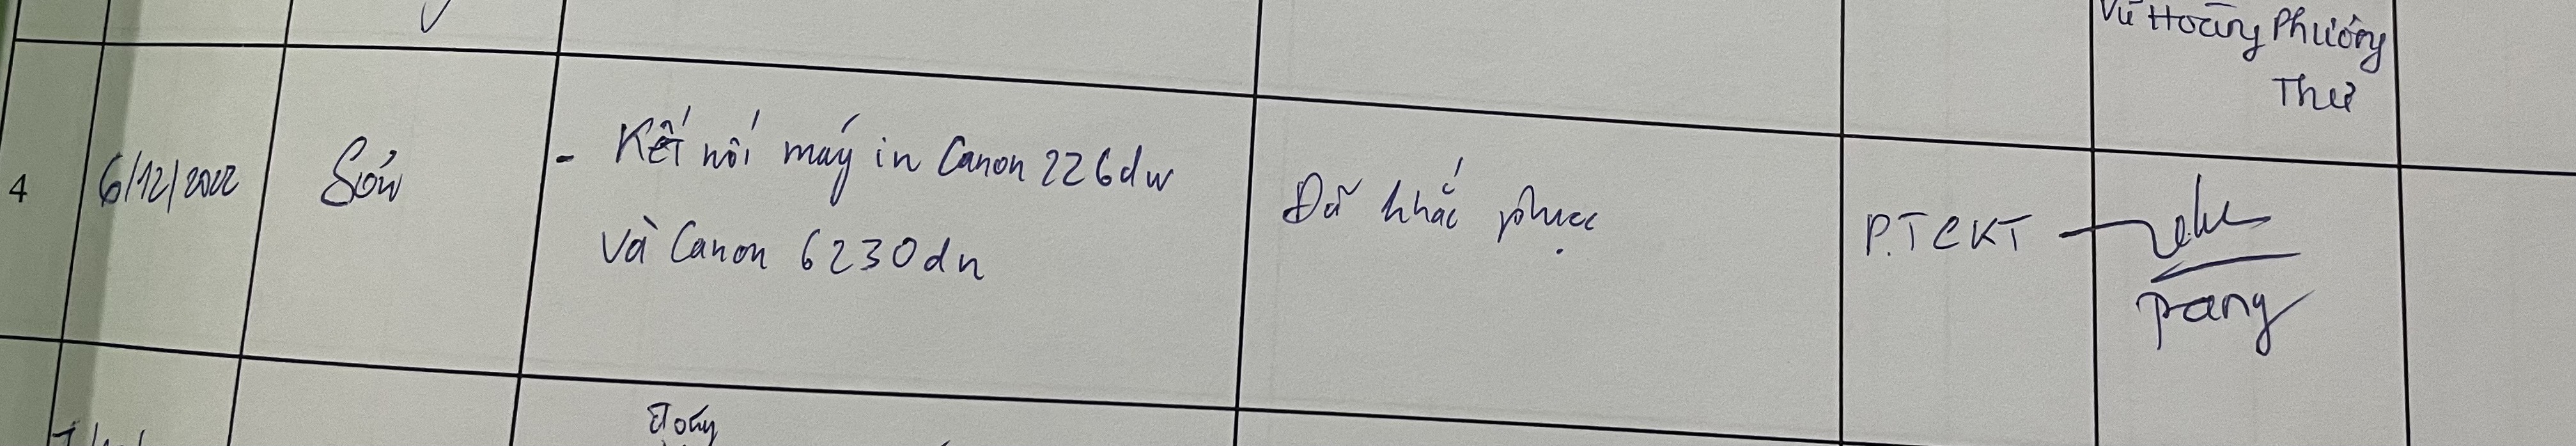 Vũ Hoàng Phương
Thư
4
6/12/2022
Sơn
- Kết nối máy in Canon 226dw
và Canon 6230dn
Đã khắc phục
P.TCKT
Trang